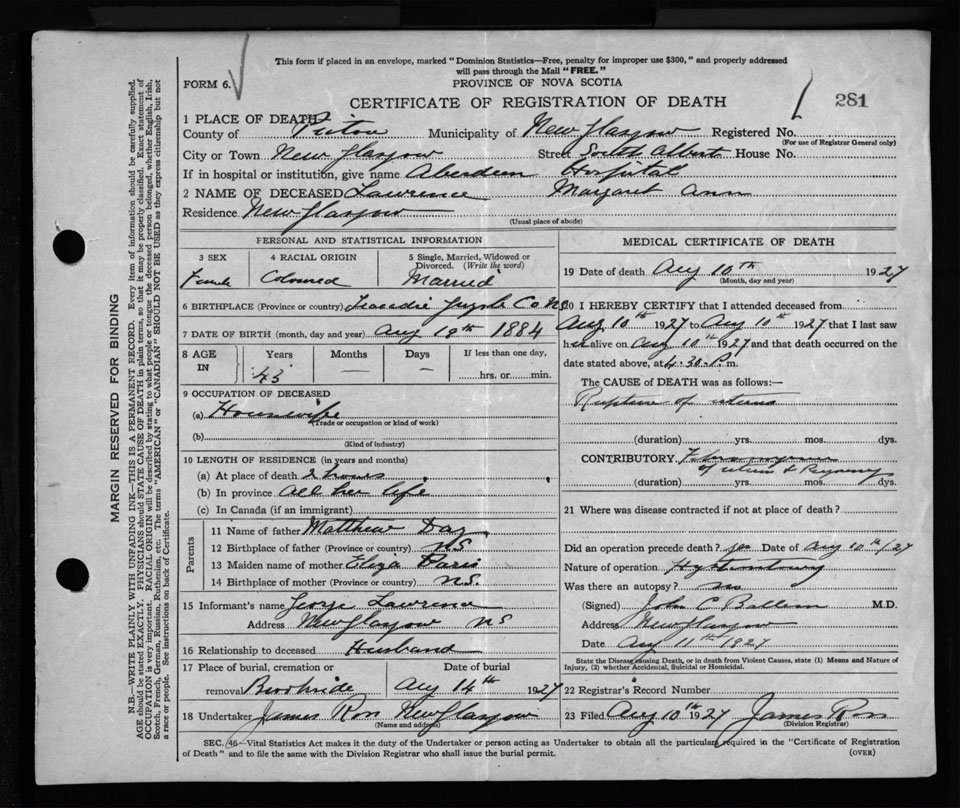 This form if placed in an envelope, marked "Dominion Statistics—Free, penalty for improper use $300," and properly addressed
will pass through the Mail "FREE."
FORM 6.
PROVINCE OF NOVA SCOTIA
CERTIFICATE OF REGISTRATION OF DEATH
281
1 PLACE OF DEATH
County of Pictou Municipality of New Glasgow Registered No.
(For use of Registrar General only)
City or Town New Glasgow Street South Albert House No.
If in hospital or institution, give name Aberdeen Hospital
2 NAME OF DECEASED Lawrence Margaret Ann
Residence New Glasgow
(Usual place of abode)
PERSONAL AND STATISTICAL INFORMATION
3 SEX 4 RACIAL ORIGIN 5 Single, Married, Widowed or
Divorced. (Write the word)
Female Coloured Married
6 BIRTHPLACE (Province or country) Tracadie Guysb Co NS
7 DATE OF BIRTH (month, day and year) Aug 18th 1884
8 AGE IN Years Months Days If less than one day,
43 — — hrs. or min.
9 OCCUPATION OF DECEASED
(a) Housewife
(Trade or occupation or kind of work)
(b)
(Kind of industry)
10 LENGTH OF RESIDENCE (in years and months)
(a) At place of death 2 hours
(b) In province All her life
(c) In Canada (if an immigrant)
Parents
11 Name of father Matthew Day
12 Birthplace of father (Province or country) NS
13 Maiden name of mother Eliza Paris
14 Birthplace of mother (Province or country) NS
15 Informant's name George Lawrence
Address New Glasgow NS
16 Relationship to deceased Husband
17 Place of burial, cremation or Date of burial
removal Aug 14th 1927
18 Undertaker James Ross New Glasgow
(Name and address)
MEDICAL CERTIFICATE OF DEATH
19 Date of death Aug 10th 1927
(Month, day and year)
20 I HEREBY CERTIFY that I attended deceased from
Aug 10th 1927 to Aug 10th 1927 that I last saw
her alive on Aug 10th 1927 and that death occurred on the
date stated above, at 4.30 P.m.
The CAUSE OF DEATH was as follows:—
Rupture of uterus
(duration) yrs. mos. dys.
CONTRIBUTORY
of uterus & Pregnancy
(duration) yrs. mos. dys.
21 Where was disease contracted if not at place of death?
Did an operation precede death? yes Date of Aug 10th/27
Nature of operation Hysterectomy
Was there an autopsy? no
(Signed) John C Ballem M.D.
Address New Glasgow
Date Aug 11th 1927
State the Disease causing Death, or in death from Violent Causes, state (1) Means and Nature of
Injury, (2) whether Accidental, Suicidal or Homicidal.
22 Registrar's Record Number
23 Filed Aug 10th 1927 James Ross
(Division Registrar)
SEC. 46—Vital Statistics Act makes it the duty of the Undertaker or person acting as Undertaker to obtain all the particulars required in the "Certificate of Registration
of Death" and to file the same with the Division Registrar who shall issue the burial permit.
(OVER)
MARGIN RESERVED FOR BINDING
N.B.—WRITE PLAINLY WITH UNFADING INK—THIS IS A PERMANENT RECORD. Every item of information should be carefully supplied.
AGE should be stated EXACTLY. PHYSICIANS should STATE CAUSE OF DEATH in plain terms, so that it may be properly classified. Exact statement of
OCCUPATION is very important. RACIAL ORIGIN will be described by stating to what people or tongue the deceased person belonged, whether English, Irish,
Scotch, French, German, Russian, Ruthenian, etc. The terms "AMERICAN" or "CANADIAN" SHOULD NOT BE USED as they express citizenship but not
a race or people. See instructions on back of Certificate.